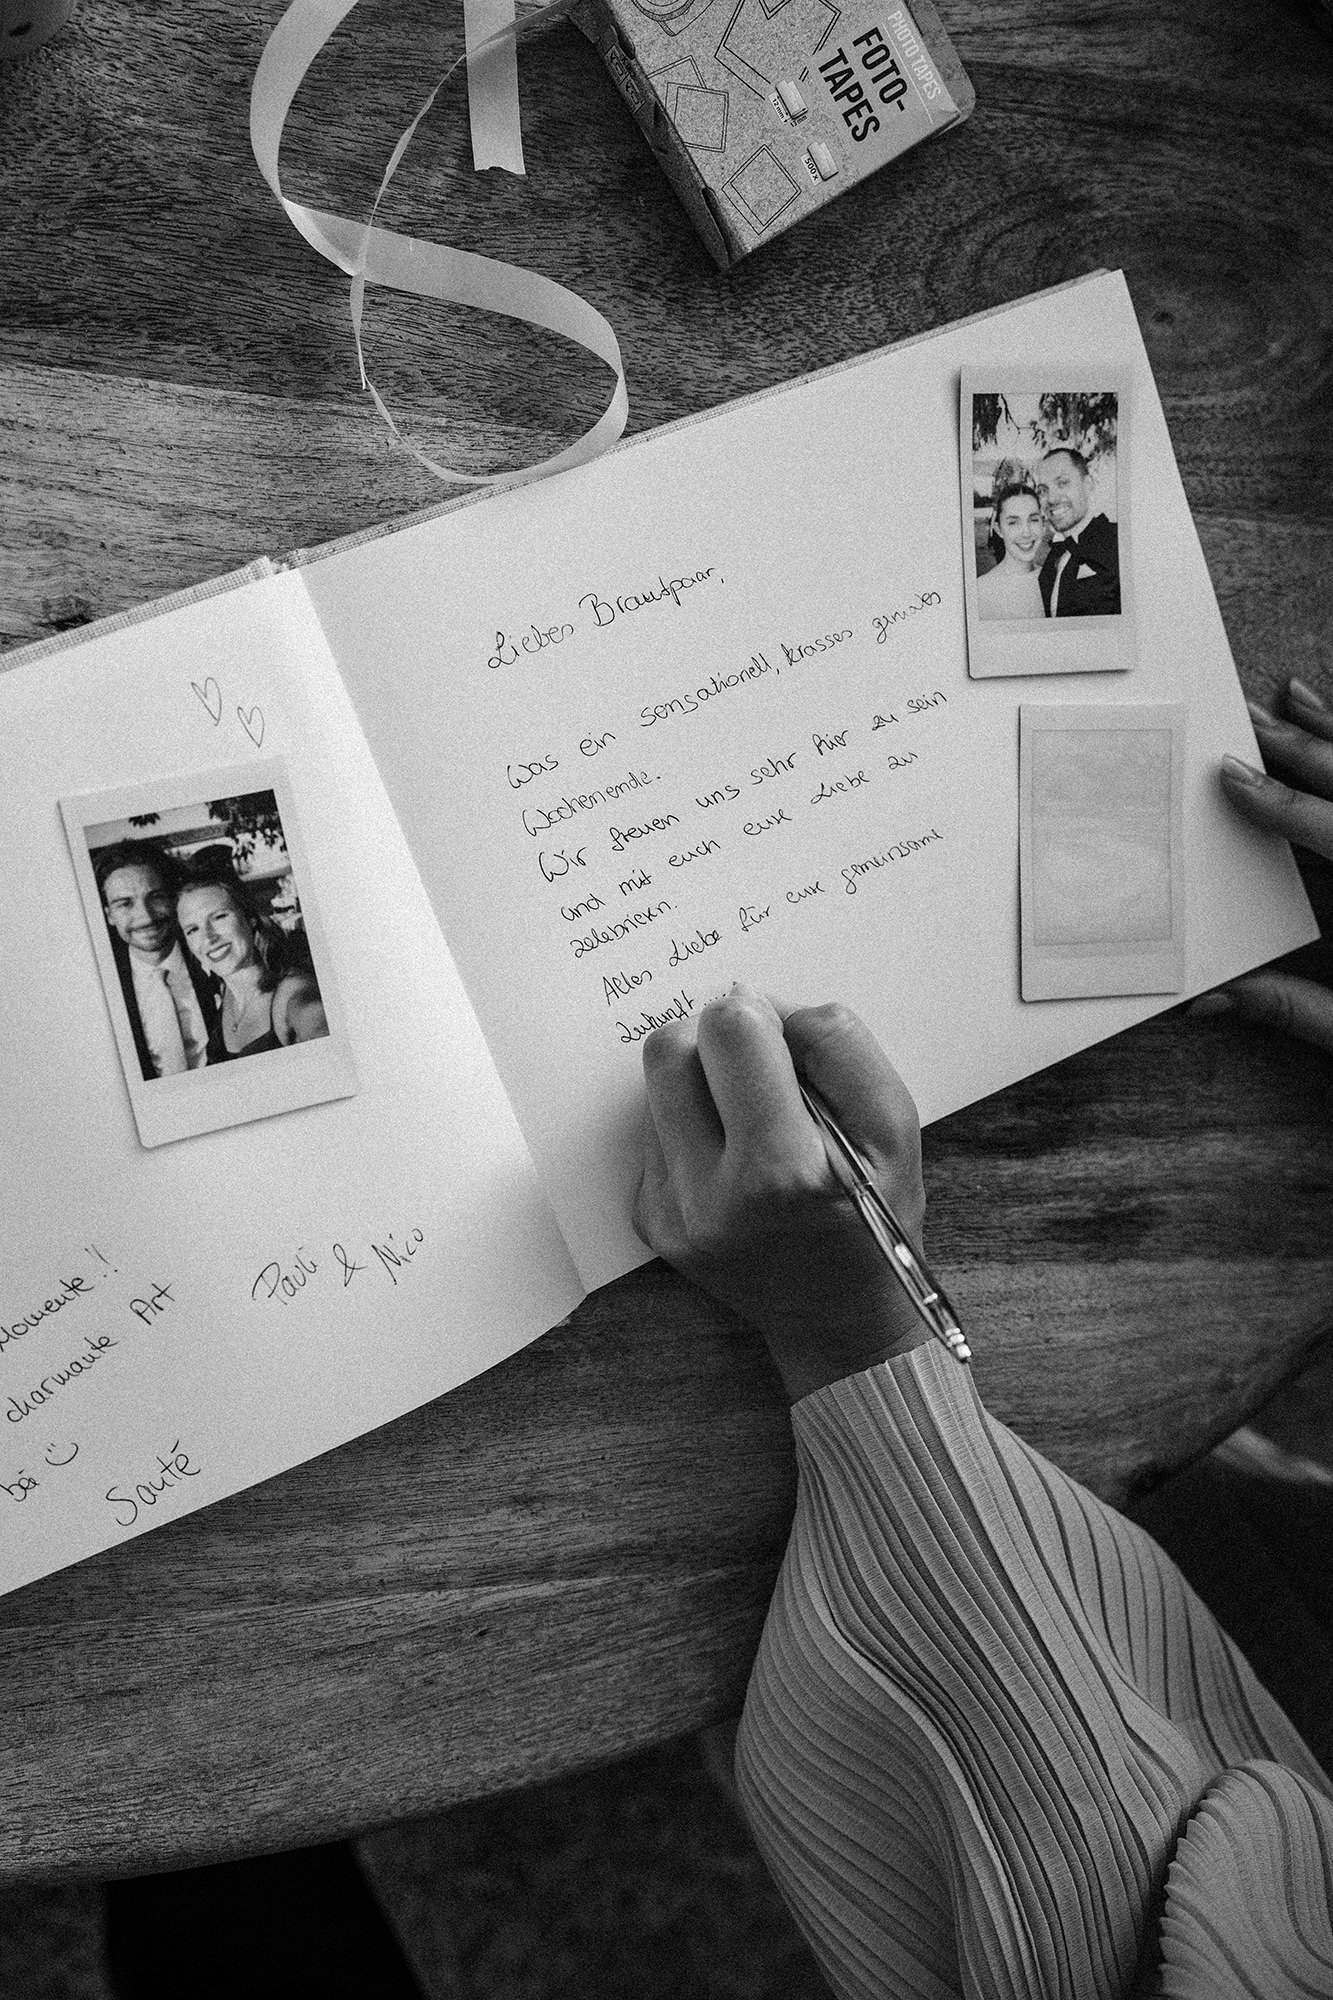 FOTO-
TAPES
PHOTO TAPES
12 mm
500x
Liebes Brautpaar,
Was ein sensationell, krasses geniales
Wochenende.
Wir freuen uns sehr hier zu sein
und mit euch eure Liebe zu
zelebrieren.
Alles Liebe für eure gemeinsame
Zukunft.....
Momente!!
charmante Art
bei
Santé
Pauli & Nico